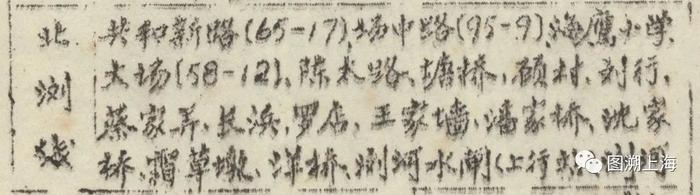 北浏线
共和新路(65-17)、场中路(95-9)、海鹰小学、
大场(58-12)、陈太路、塘桥、顾村、刘行、
蔡家弄、长浜、罗店、王家墙、潘家桥、沈家
桥、猎草墩、洋桥、浏河水闸(上行
图溯上海